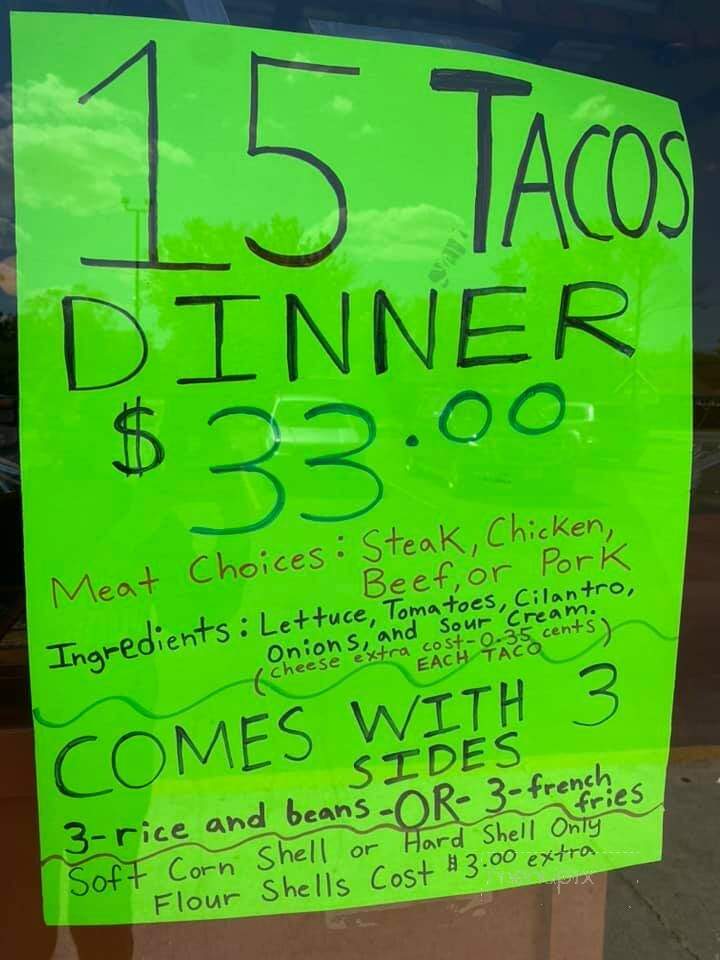 15 TACOS
DINNER
$33.00
Meat Choices: Steak, Chicken,
Beef, or Pork
Ingredients: Lettuce, Tomatoes, Cilantro,
Onions, and Sour Cream.
(cheese extra cost-0.35 cents)
EACH TACO
COMES WITH 3
SIDES
3-rice and beans -OR- 3-french
fries
Soft Corn Shell or Hard Shell Only
Flour Shells Cost $3.00 extra